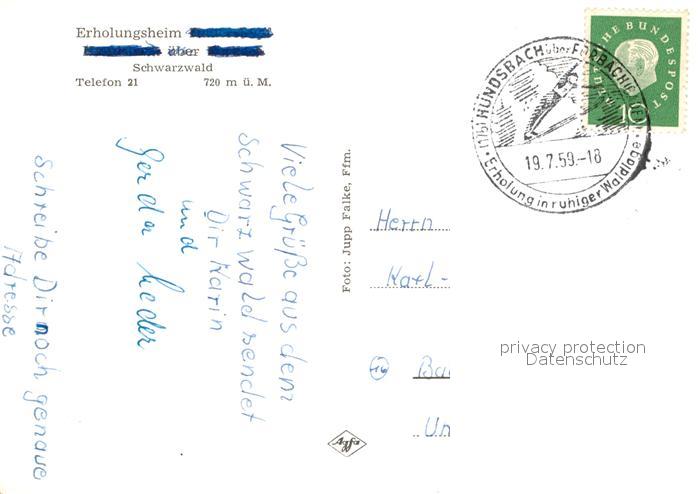 Erholungsheim
über
Schwarzwald
Telefon 21 720 m ü. M.
DEUTSCHE BUNDESPOST
10
(17b) HUNDSBACH über FORBACH (BADEN)
19.7.59.-18
Erholung in ruhiger Waldlage
Viele Grüße aus dem
Schwarzwald sendet
Dir Karin
und
Gerda
Schreibe Dir noch genaue
Adresse
Foto: Jupp Falke, Ffm.
Herrn
Karl-
Agfa
privacy protection
Datenschutz